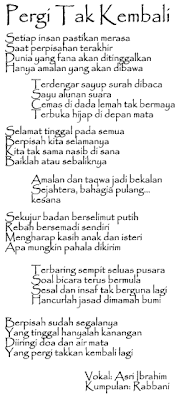 Pergi Tak Kembali
Setiap insan pastikan merasa
Saat perpisahan terakhir
Dunia yang fana akan ditinggalkan
Hanya amalan yang akan dibawa
Terdengar sayup surah dibaca
Sayu alunan suara
Cemas di dada lemah tak bermaya
Terbuka hijap di depan mata
Selamat tinggal pada semua
Berpisah kita selamanya
Kita tak sama nasib di sana
Baiklah atau sebaliknya
Amalan dan taqwa jadi bekalan
Sejahtera, bahagia pulang...
kesana
Sekujur badan berselimut putih
Rebah bersemadi sendiri
Mengharap kasih anak dan isteri
Apa mungkin pahala dikirim
Terbaring sempit seluas pusara
Soal bicara terus bermula
Sesal dan insaf tak berguna lagi
Hancurlah jasad dimamah bumi
Berpisah sudah segalanya
Yang tinggal hanyalah kanangan
Diiringi doa dan air mata
Yang pergi takkan kembali lagi
Vokal: Asri Ibrahim
Kumpulan: Rabbani